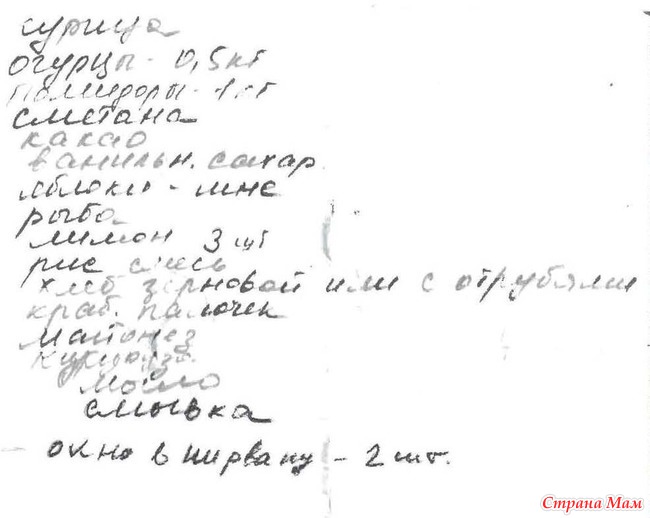 курица
огурцы - 0,5кг
помидоры - 1кг
сметана
какао
ванильн. сахар
яблоки - мне
рыба
лимон 3 шт
рис смесь
хлеб зерновой или с отрубями
краб. палочек
майонез
кукуруза
мыло
смывка
окно в нирвану - 2 шт.
Страна Мам